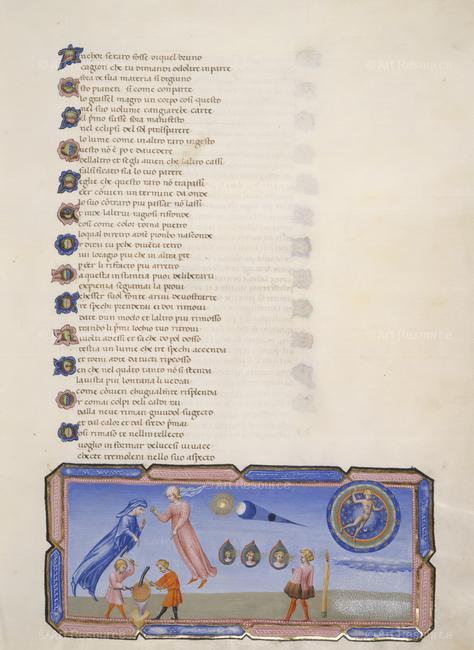 Anchor se raro fosse di quel bruno
cagion che tu dimandi od oltre in parte
fora di sua materia si digiuno
Esto pianeti si come conparte
lo grassel magro un corpo cosi questo
nel suo volume cangiarebe carte
Sel primo fusse fora manifesto
nel eclipsi del sol
lo lume come in altro raro ingesto
Questo nó é po e davedere
dellaltro et segli avien che laltro cassi
falsificato fia lo tuo parere
Segli e che questo raro nó trapassi
esser cóvien un termine da onde
lo suo cótraro piu passar nó lassi
Et inde laltrui raggio si
cosi come color torna
loqual diretro
Or dirai tu
ivi loragio piu che in altra
per li
Da questa instantia puoi
experienza segiamai la provi
chesser suol fonte
Tre spechi prenderai et doi rimovi
date dun modo et laltro piu rimosso
li primi lochio tuo ritrovi
Rivolti adessi et fa che do pol dosso
testia un lume che tre spechi accenda
et torni adte da tucti ripcosso
Ben che nel quáto tanto nó si stenda
la vista piu lontana li vedrai
come cóvien chugualmente risplenda
Or comai colpi deli caldi rai
dalla neve riman gnudol sugecto
et dal color et dal
Cosi rimaso te nellintellecto
voglio informar de luce si vivace
che te tremolera nello suo aspecto
© Art Resource